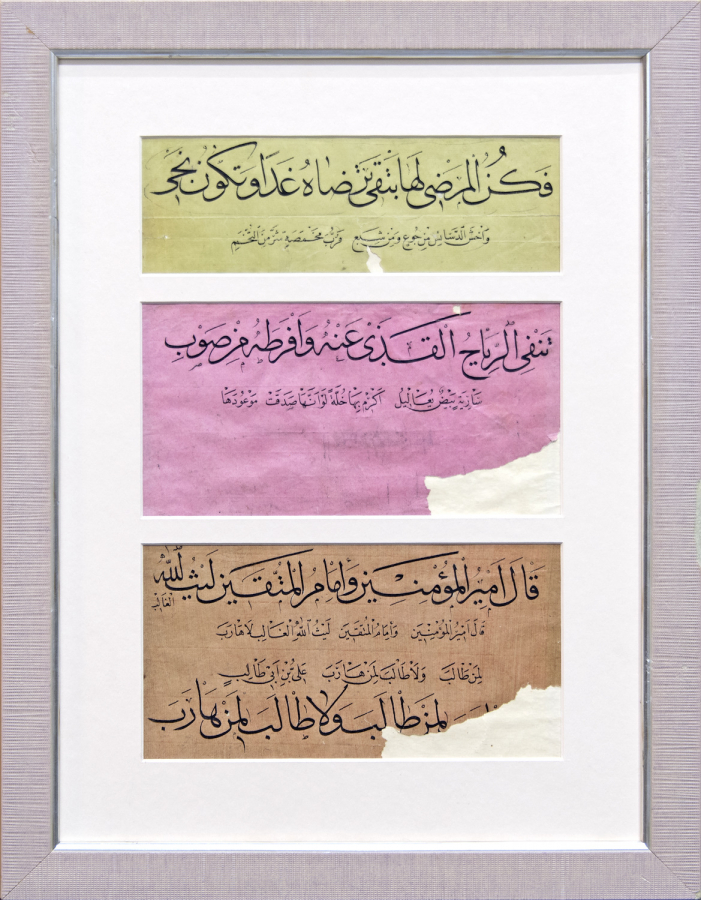 فَكُنْ المَرْضِى لَهَا بِتُقًى تَرْضَاهُ غَدًا وَتَكُونُ نَجِى
وَاخْشَ الدَّسَائِسَ مِنْ جُوعٍ وَمِنْ شِبَعٍ فَرُبَّ مَخْمَصَةٍ شَرٌّ مِنَ التُّخَمِ
تَنْفِى الرِّيَاحُ الْقَذَى عَنْهُ وَاَفْرَطَهُ مِنْ صَوْبِ
سَارِيَةٍ بِيضٌ يَعَالِيلُ اَكْرِمْ بِهَا خُلَّةً لَوْ اَنَّهَا صَدَقَتْ مَوْعُودَهَا
قَالَ اَمِيرُ الْمُؤْمِنِينَ وَاِمَامُ الْمُتَّقِينَ لَيْثُ اللّٰهِ الْغَالِبْ
قَالَ اَمِيرُ الْمُؤْمِنِينَ وَاِمَامُ الْمُتَّقِينَ لَيْثُ اللّٰهِ الْغَالِبِ لَا هَارَبَ
لِمَنْ طَالَبَ وَلَا طَالَبَ لِمَنْ هَارَبَ عَلِىُّ بْنُ اَبِى طَالِبٍ
لِمَنْ طَالَبَ وَلَا طَالَبَ لِمَنْ هَارَبَ